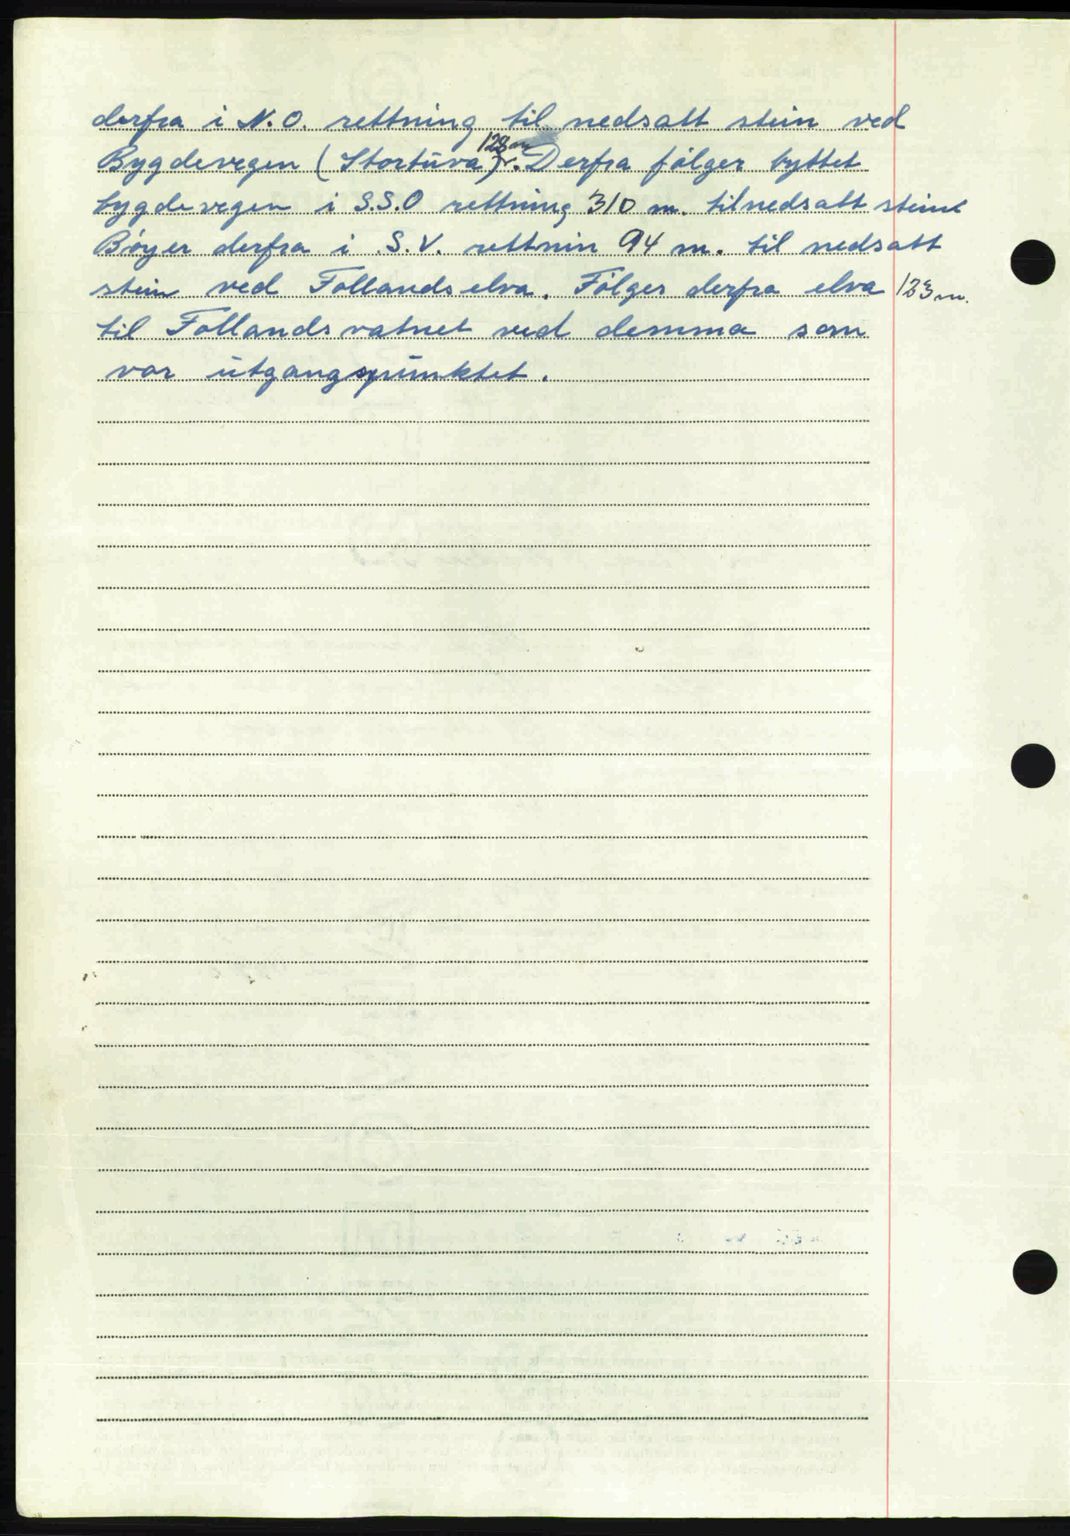 derfra i N.O. rettning til nedsatt stein ved
Bygdevegen (Stortuva). 128 m Derfra følger byttet
bygdevegen i S.S.O rettning 310 m. til nedsatt stein
Bøyer derfra i S.V. rettnin 94 m. til nedsatt
stein ved Follandselva. Følger derfra elva 123 m.
til Follandsvatnet ved demma som
var utgangspunktet.